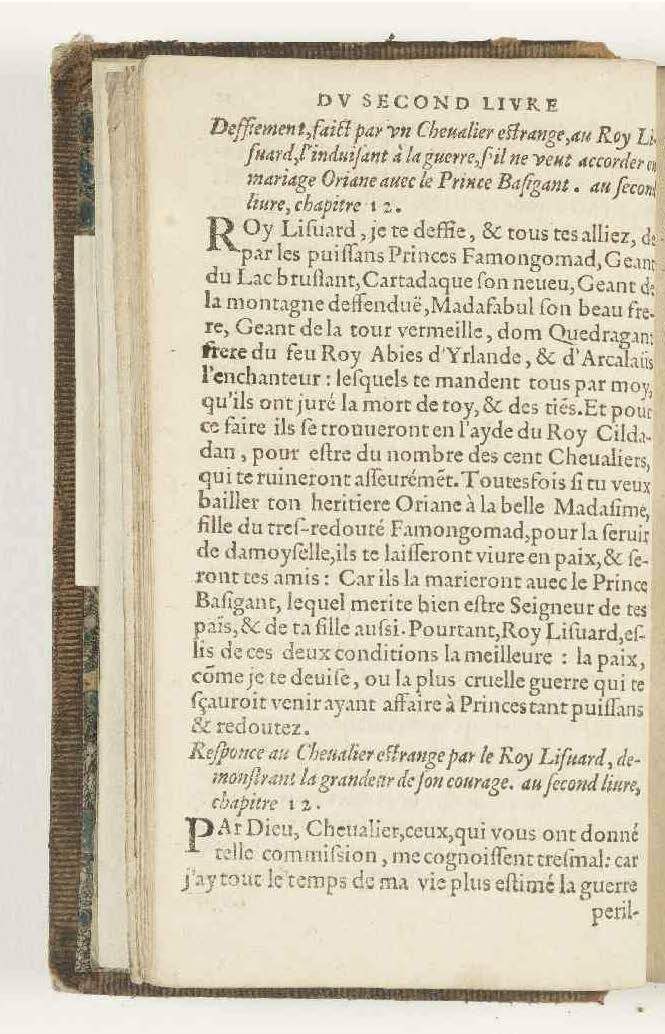 DV SECOND LIVRE
Deffiement, faict par vn Cheualier estrange, au Roy Li-
suard, l'induisant à la guerre, s'il ne veut accorder en
mariage Oriane auec le Prince Basigant. au second
liure, chapitre 12.
ROy Lisuard, je te deffie, & tous tes alliez, de
par les puissans Princes Famongomad, Geant
du Lac bruslant, Cartadaque son neueu, Geant de
la montagne deffenduë, Madafabul son beau fre-
re, Geant de la tour vermeille, dom Quedragant
frere du feu Roy Abies d'Yrlande, & d'Arcalaüs
l'enchanteur: lesquels te mandent tous par moy,
qu'ils ont juré la mort de toy, & des tiēs. Et pour
ce faire ils se trouueront en l'ayde du Roy Cilda-
dan, pour estre du nombre des cent Cheualiers,
qui te ruineront asseurémēt. Toutesfois si tu veux
bailler ton heritiere Oriane à la belle Madasime,
fille du tres-redouté Famongomad, pour la seruir
de damoyselle, ils te laisseront viure en paix, & se-
ront tes amis: Car ils la marieront auec le Prince
Basigant, lequel merite bien estre Seigneur de tes
païs, & de ta fille aussi. Pourtant, Roy Lisuard, es-
lis de ces deux conditions la meilleure: la paix,
cōme je te deuise, ou la plus cruelle guerre qui te
sçauroit venir ayant affaire à Princes tant puissans
& redoutez.
Responce au Cheualier estrange par le Roy Lisuard, de-
monstrant la grandeur de son courage. au second liure,
chapitre 12.
PAr Dieu, Cheualier, ceux, qui vous ont donné
telle commission, me cognoissent tresmal: car
j'ay tout le temps de ma vie plus estimé la guerre
peril-